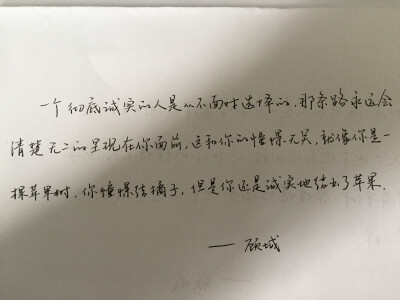 一个彻底诚实的人是从不面对选择的，那条路永远会
清楚无二的呈现在你面前，这和你的憧憬无关，就像你是一
棵苹果树，你憧憬结橘子，但是你还是诚实地结出了苹果．
——顾城